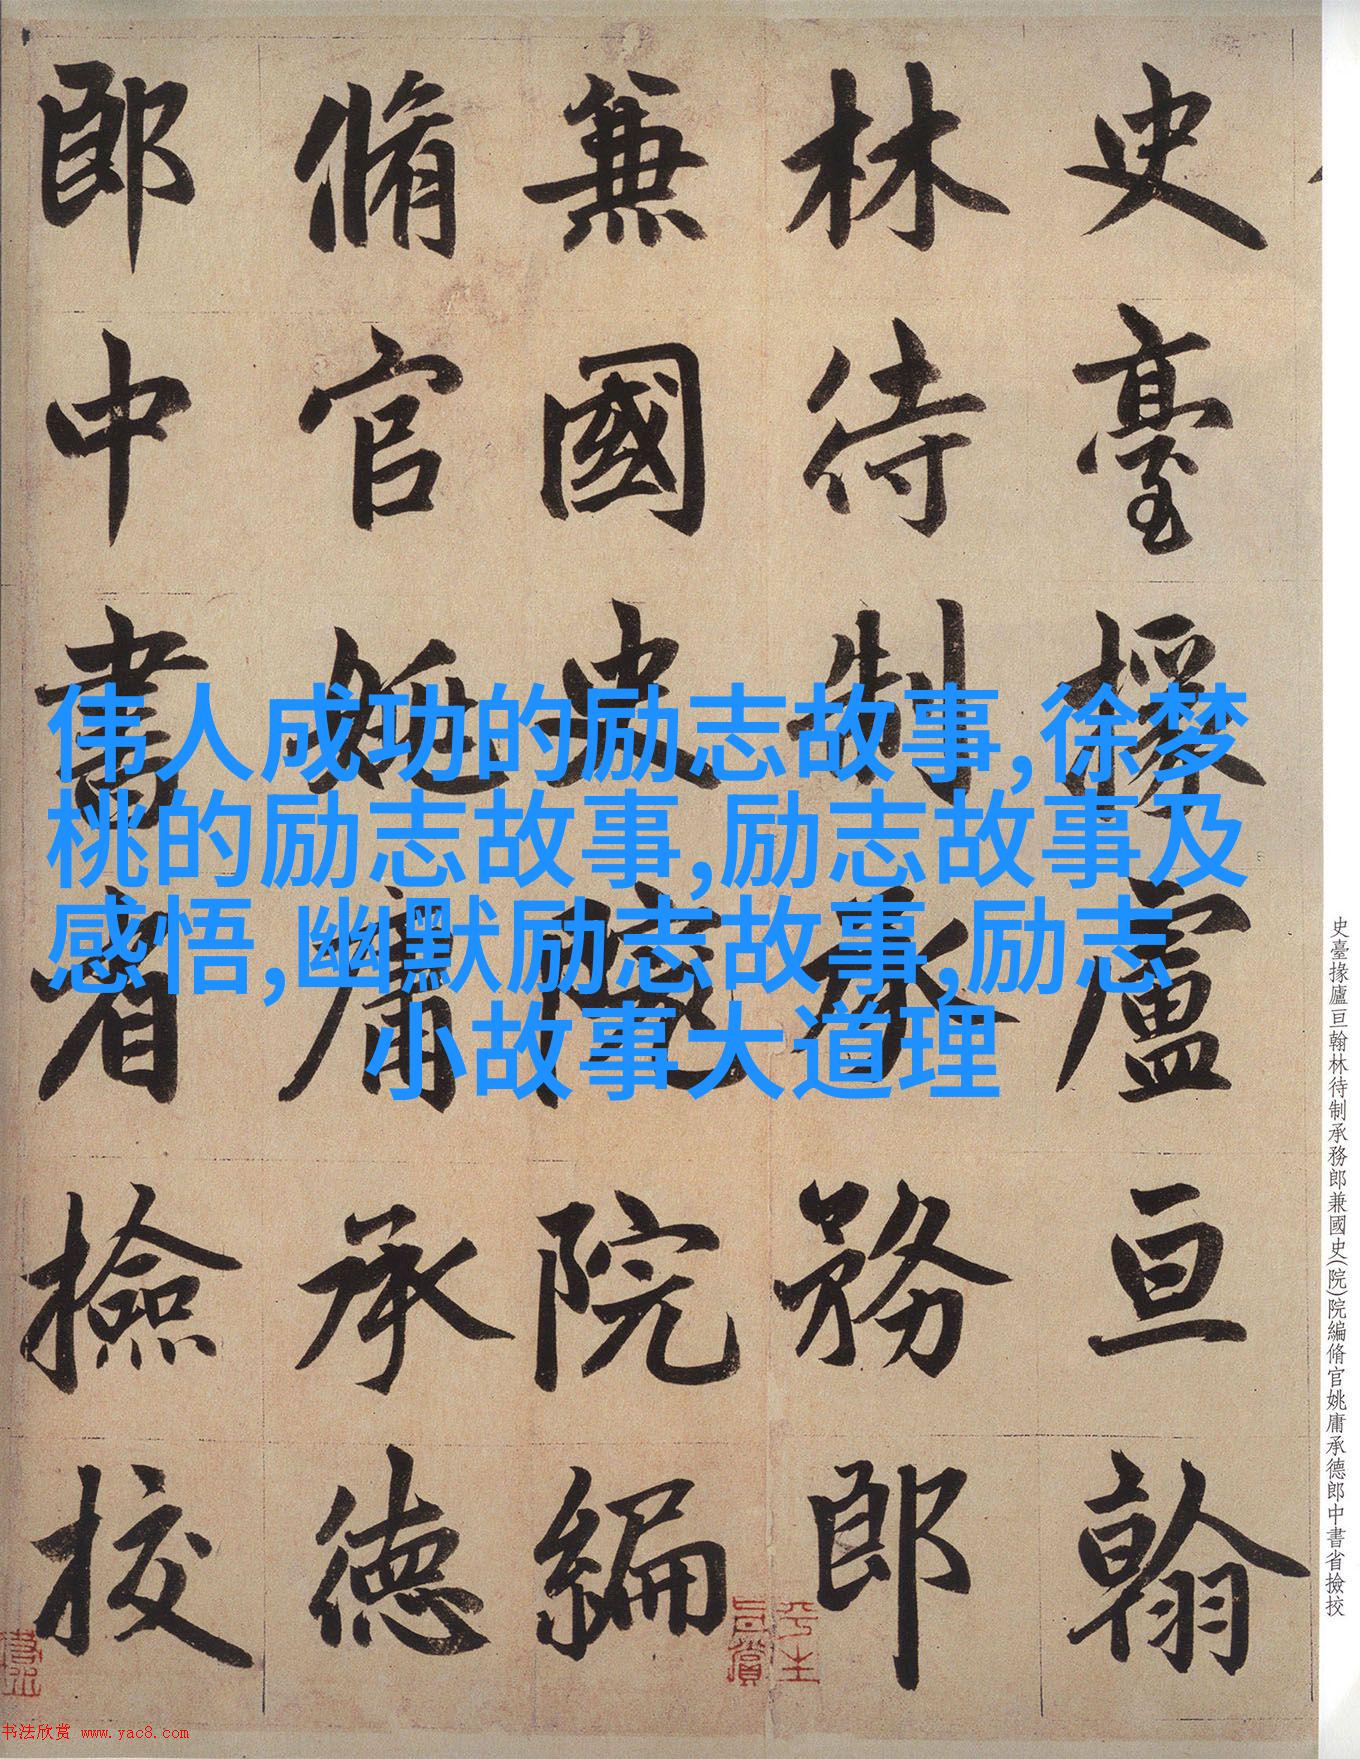 史臺掾廬亘翰
林待制承務郎
兼國史院院編
脩官姚庸承德
郎中書省撿挍
伟人成功的励志故事,徐梦
桃的励志故事,励志故事及
感悟,幽默励志故事,励志
小故事大道理
史臺掾廬亘翰林待制承務郎兼國史(院)院編脩官姚庸承德郎中書省撿挍
平生
真賞
书法欣赏 www.yac8.com